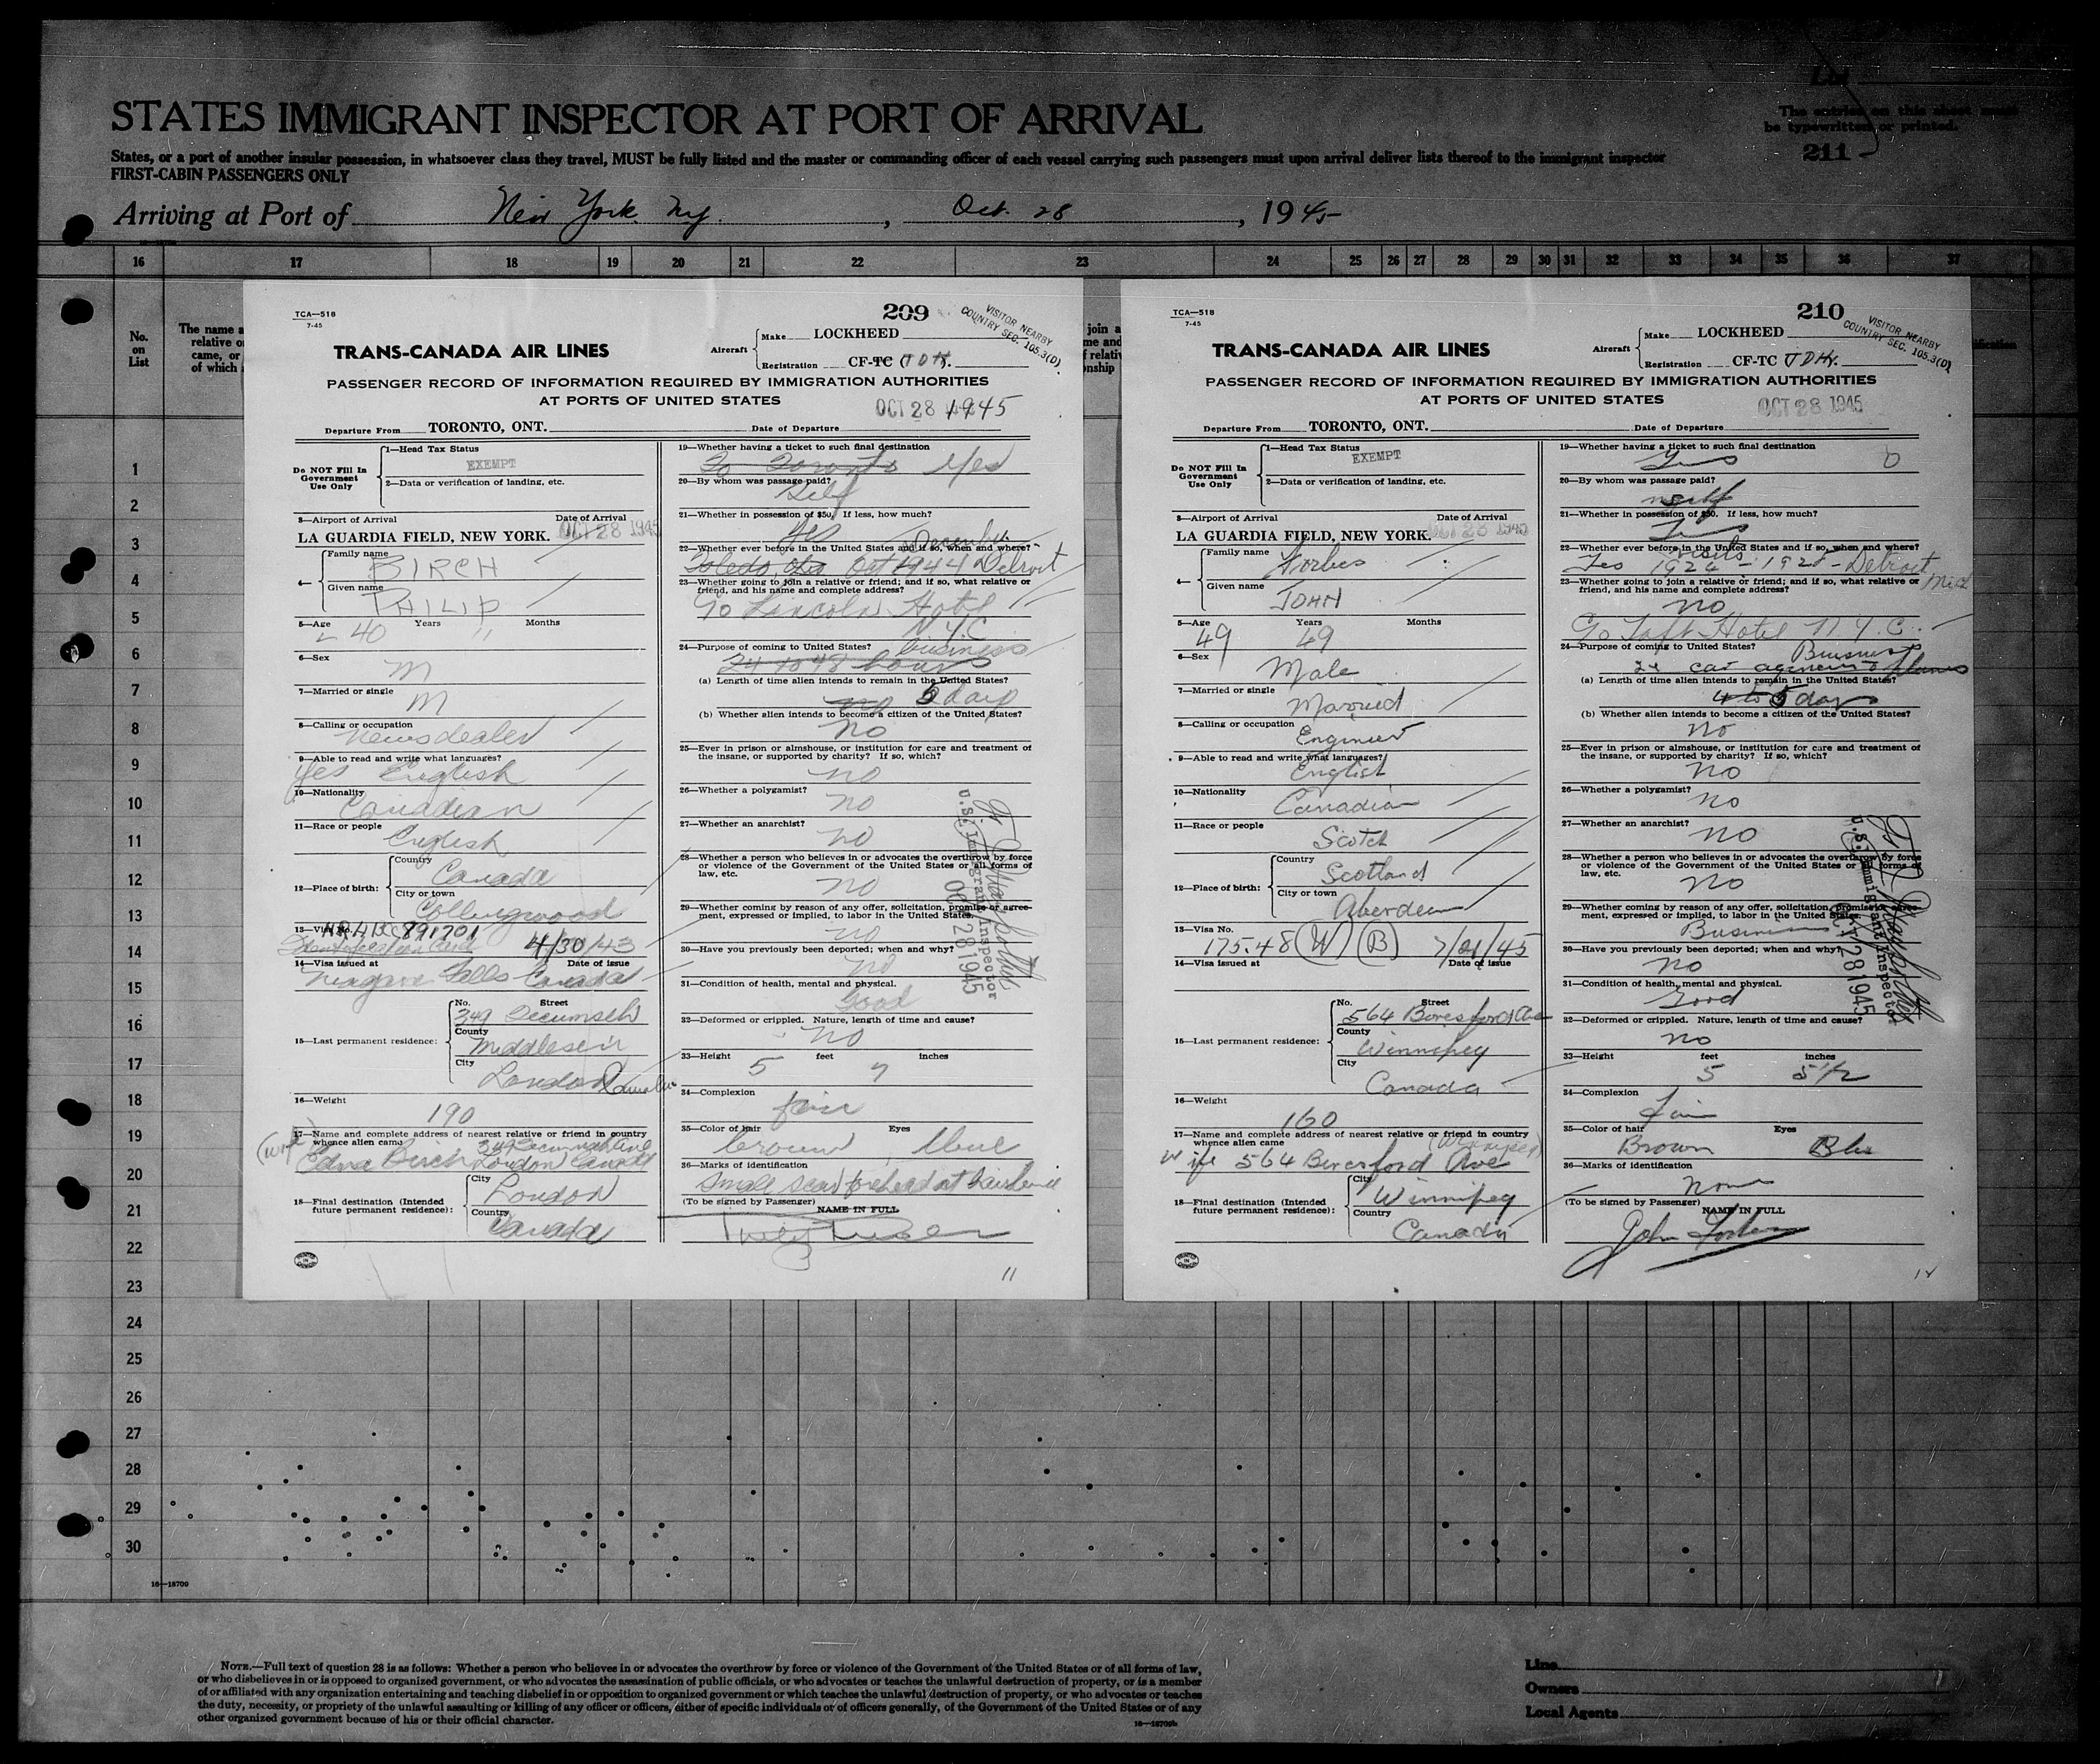 STATES IMMIGRANT INSPECTOR AT PORT OF ARRIVAL
The entries on this sheet must
be typewritten or printed.
211
States, or a port of another insular possession, in whatsoever class they travel, MUST be fully listed and the master or commanding officer of each vessel carrying such passengers must upon arrival deliver lists thereof to the immigrant inspector
FIRST-CABIN PASSENGERS ONLY
Arriving at Port of New York. Ny. , Oct. 28 , 1945
16 17 18 19 20 21 22 23 24 25 26 27 28 29 30 31 32 33 34 35 36 37
No. on List
The name a
relative o
came, or
of which
join a
me and
f relati
nship
1
2
3
4
5
6
7
8
9
10
11
12
13
14
15
16
17
18
19
20
21
22
23
24
25
26
27
28
29
30
TCA—518
7-45
209
VISITOR NEARBY
COUNTRY SEC. 105.3(D)
TRANS-CANADA AIR LINES
Aircraft
Make LOCKHEED
Registration CF-TC
PASSENGER RECORD OF INFORMATION REQUIRED BY IMMIGRATION AUTHORITIES
AT PORTS OF UNITED STATES
OCT 28 1945
Departure From TORONTO, ONT. Date of Departure
Do NOT Fill In
Government
Use Only
1—Head Tax Status
EXEMPT
2—Data or verification of landing, etc.
3—Airport of Arrival Date of Arrival
LA GUARDIA FIELD, NEW YORK. OCT 28 1945
4— Family name
BIRCH
Given name
PHILIP
5—Age Years Months
40
6—Sex
M
7—Married or single
M
8—Calling or occupation
Newsdealer
9—Able to read and write what languages?
Yes English
10—Nationality
Canadian
11—Race or people
English
12—Place of birth:
Country
Canada
City or town
Collingwood
13—Visa No.
891701
4/30/43
14—Visa issued at Date of issue
Niagara Falls Canada
15—Last permanent residence:
No. Street
349 Tecumseh
County
Middlesex
City
London Canada
16—Weight
190
17—Name and complete address of nearest relative or friend in country
whence alien came
(wife) Edna Birch 349 Tecumseh Ave
London Canada
18—Final destination (Intended
future permanent residence):
City
London
Country
Canada
19—Whether having a ticket to such final destination
To Toronto Yes
20—By whom was passage paid?
Self
21—Whether in possession of $50. If less, how much?
Yes
22—Whether ever before in the United States and if so, when and where?
December
Toledo, Oct 1944 Detroit
23—Whether going to join a relative or friend; and if so, what relative or
friend, and his name and complete address?
Go Lincoln Hotel
N.Y.C
24—Purpose of coming to United States? business
24 to 48 hours
(a) Length of time alien intends to remain in the United States?
no 5 days
(b) Whether alien intends to become a citizen of the United States?
No
25—Ever in prison or almshouse, or institution for care and treatment of
the insane, or supported by charity? If so, which?
no
26—Whether a polygamist?
no
27—Whether an anarchist?
no
28—Whether a person who believes in or advocates the overthrow by force
or violence of the Government of the United States or all forms of
law, etc.
no
29—Whether coming by reason of any offer, solicitation, promise or agree-
ment, expressed or implied, to labor in the United States
no
30—Have you previously been deported; when and why?
no
31—Condition of health, mental and physical.
Good
32—Deformed or crippled. Nature, length of time and cause?
NO
33—Height feet inches
5 7
34—Complexion
fair
35—Color of hair Eyes
brown blue
36—Marks of identification
Small scar forehead at hairline
(To be signed by Passenger) NAME IN FULL
U.S. Immigrant Inspector
OCT 28 1945
11
TCA—518
7-45
210
VISITOR NEARBY
COUNTRY SEC. 105.3(D)
TRANS-CANADA AIR LINES
Aircraft
Make LOCKHEED
Registration CF-TC
PASSENGER RECORD OF INFORMATION REQUIRED BY IMMIGRATION AUTHORITIES
AT PORTS OF UNITED STATES
OCT 28 1945
Departure From TORONTO, ONT. Date of Departure
Do NOT Fill In
Government
Use Only
1—Head Tax Status
EXEMPT
2—Data or verification of landing, etc.
3—Airport of Arrival Date of Arrival
LA GUARDIA FIELD, NEW YORK. OCT 28 1945
4— Family name
Forbes
Given name
JOHN
5—Age Years Months
49 49
6—Sex
Male
7—Married or single
Married
8—Calling or occupation
Engineer
9—Able to read and write what languages?
English
10—Nationality
Canadian
11—Race or people
Scotch
12—Place of birth:
Country
Scotland
City or town
Aberdeen
13—Visa No.
175.48 (W) (B) 7/21/45
14—Visa issued at Date of issue
15—Last permanent residence:
No. Street
564 Beresford Ave
County
Winnipeg
City
Canada
16—Weight
160
17—Name and complete address of nearest relative or friend in country
whence alien came (Winnipeg)
wife 564 Beresford Ave
18—Final destination (Intended
future permanent residence):
City
Winnipeg
Country
Canada
19—Whether having a ticket to such final destination
Yes
20—By whom was passage paid?
self
21—Whether in possession of $50. If less, how much?
Yes
22—Whether ever before in the United States and if so, when and where?
visits
Yes 1924 - 1928 - Detroit Mich
23—Whether going to join a relative or friend; and if so, what relative or
friend, and his name and complete address?
no
Go Taft Hotel N.Y.C.
24—Purpose of coming to United States? Business
car agencies
(a) Length of time alien intends to remain in the United States?
4 to 5 days
(b) Whether alien intends to become a citizen of the United States?
No
25—Ever in prison or almshouse, or institution for care and treatment of
the insane, or supported by charity? If so, which?
no
26—Whether a polygamist?
no
27—Whether an anarchist?
no
28—Whether a person who believes in or advocates the overthrow by force
or violence of the Government of the United States or forms of
law, etc.
no
29—Whether coming by reason of any offer, solicitation, promise or agree-
ment, expressed or implied, to labor in the United States.
Business
30—Have you previously been deported; when and why?
no
31—Condition of health, mental and physical.
Good
32—Deformed or crippled. Nature, length of time and cause?
no
33—Height feet inches
5 5 1/2
34—Complexion
Fair
35—Color of hair Eyes
Brown Blue
36—Marks of identification
None
(To be signed by Passenger) NAME IN FULL
John Forbes
U.S. Immigrant Inspector
OCT 28 1945
16—18709
NOTE.—Full text of question 28 is as follows: Whether a person who believes in or advocates the overthrow by force or violence of the Government of the United States or of all forms of law,
or who disbelieves in or is opposed to organized government, or who advocates the assassination of public officials, or who advocates or teaches the unlawful destruction of property, or is a member
of or affiliated with any organization entertaining and teaching disbelief in or opposition to organized government or which teaches the unlawful destruction of property, or who advocates or teaches
the duty, necessity, or propriety of the unlawful assaulting or killing of any officer or officers, either of specific individuals or of officers generally, of the Government of the United States or of any
other organized government because of his or their official character.
16—18709b
Line
Owners
Local Agents